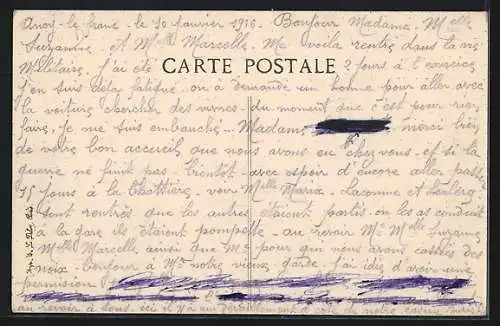 Anoy-le-franc - le 10 Janvier 1916 - Bonjour Madame. Melle
Suzanne - et Melle Marcelle. Me voila rentré dans la vie
Militaire. J'ai été 2 jours à l'exercice
CARTE POSTALE
j'en suis déja fatigué - on a demandé un homme pour aller avec
la voiture chercher des vivres - du moment que c'est pour rien
faire, je me suis embauché - Madame merci bien
de votre bon accueil que nous avons eu chez vous - et si la
guerre ne finit pas bientôt - avec espoir d'encore aller passer
15 jours à la voir Melle Maria - Lacomme et Leclerg
sont rentrés que les autres étaient partis - on les as conduit
à la gare ils étaient pompette - au revoir Me Melle Suzanne
Melle Marcelle ainsi que Mr pour qui nous avons cassés des
noix - Bonjour à Mr notre vieux garde - j'ai idée d'avoir une
permission
au revoir à tous, ici il y a de notre